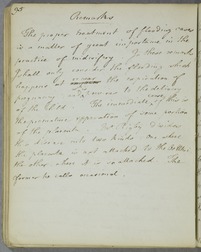 95
Remarks
The proper treatment of flooding cases
is a matter of great importance in the
practice of midwifery. In these remarks
I shall only consider the flooding which
happens at the expiration of
pregnancy or to the delivery
of the The immediate cause of this is
the premature separation of some portion
of the placenta. Dr. Rigby divides
the disease into two kinds. One where
the placenta is not attached to the
the other where it is so attached. The
former he calls accidental.